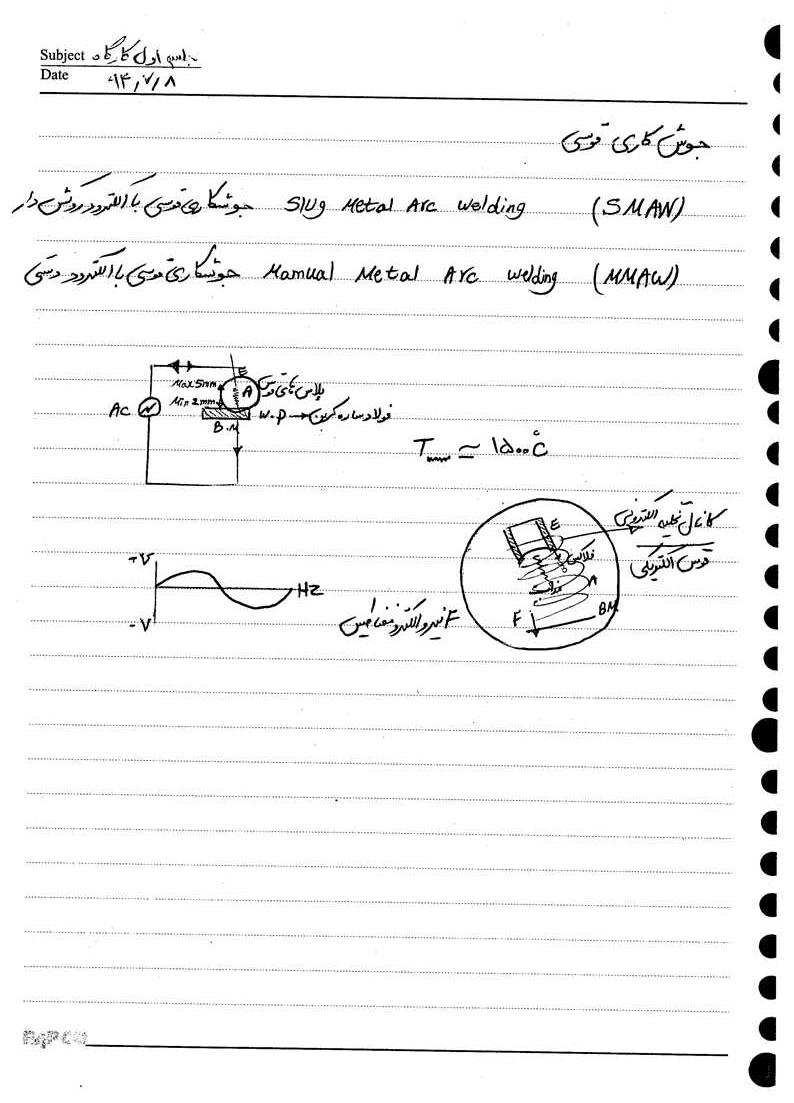 Subject جلسه اول کارگاه
Date ۹۴/۷/۸
جوش کاری قوسی
جوشکاری قوسی با الکترود روکش دار Slug Metal Arc Welding (SMAW)
جوشکاری قوسی با الکترود دستی Mamual Metal Arc Welding (MMAW)
E
Max 5mm
A
Min 2mm
پلاس های قوس
AC
W.P → فولاد ساده کربن
B.M
T ≃ ۱۵۰۰ c°
E
کانال تخلیه الکترونی
فلاکس
قوس الکتریکی
+V
HZ
-V
A
ذرات
F
B.M
F نیرو الکترومغناطیس